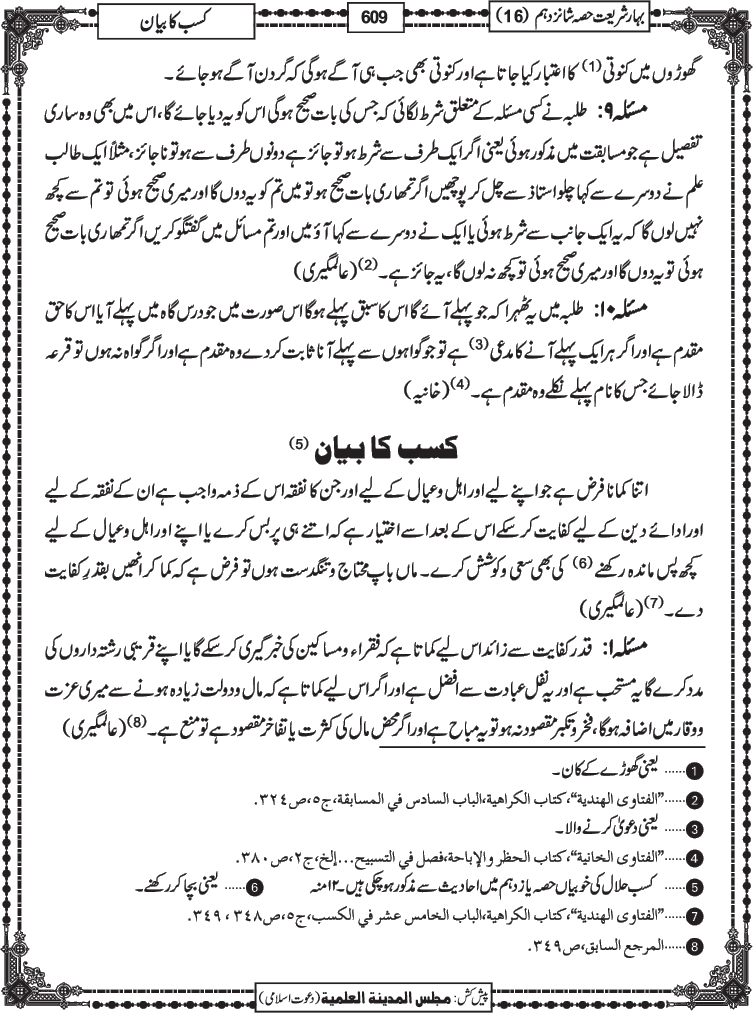 بہارِ شریعت حصہ شانزدہم (16)
609
کسب کا بیان
گھوڑوں میں کنوتی (1) کا اعتبار کیا جاتا ہے اور کنوتی بھی جب ہی آگے ہوگی کہ گردن آگے ہو جائے۔
مسئلہ ۹: طلبہ نے کسی مسئلہ کے متعلق شرط لگائی کہ جس کی بات صحیح ہوگی اس کو یہ دیا جائے گا، اس میں بھی وہ ساری
تفصیل ہے جو مسابقت میں مذکور ہوئی یعنی اگر ایک طرف سے شرط ہو تو جائز ہے دونوں طرف سے ہو تو ناجائز، مثلاً ایک طالب
علم نے دوسرے سے کہا چلو استاذ سے چل کر پوچھیں اگر تمہاری بات صحیح ہو تو میں تم کو یہ دوں گا اور میری صحیح ہوئی تو تم سے کچھ
نہیں لوں گا کہ یہ ایک جانب سے شرط ہوئی یا ایک نے دوسرے سے کہا آؤ میں اور تم مسائل میں گفتگو کریں اگر تمہاری بات صحیح
ہوئی تو یہ دوں گا اور میری صحیح ہوئی تو کچھ نہ لوں گا، یہ جائز ہے۔ (2) (عالمگیری)
مسئلہ ۱۰: طلبہ میں یہ ٹھہرا کہ جو پہلے آئے گا اس کا سبق پہلے ہوگا اس صورت میں جو درس گاہ میں پہلے آیا اس کا حق
مقدم ہے اور اگر ہر ایک پہلے آنے کا مدعی (3) ہے تو جو گواہوں سے پہلے آنا ثابت کردے وہ مقدم ہے اور اگر گواہ نہ ہوں تو قرعہ
ڈالا جائے جس کا نام پہلے نکلے وہ مقدم ہے۔ (4) (خانیہ)
کسب کا بیان (5)
اتنا کمانا فرض ہے جو اپنے لیے اور اہل و عیال کے لیے اور جن کا نفقہ اس کے ذمہ واجب ہے ان کے نفقہ کے لیے
اور ادائے دین کے لیے کفایت کرسکے اس کے بعد اسے اختیار ہے کہ اتنے ہی پر بس کرے یا اپنے اور اہل و عیال کے لیے
کچھ پس ماندہ رکھنے (6) کی بھی سعی و کوشش کرے۔ ماں باپ محتاج و تنگدست ہوں تو فرض ہے کہ کما کر انھیں بقدرِ کفایت
دے۔ (7) (عالمگیری)
مسئلہ ۱: قدرِ کفایت سے زائد اس لیے کماتا ہے کہ فقراء و مساکین کی خبر گیری کرسکے گا یا اپنے قریبی رشتہ داروں کی
مدد کرے گا یہ مستحب ہے اور یہ نفل عبادت سے افضل ہے اور اگر اس لیے کماتا ہے کہ مال و دولت زیادہ ہونے سے میری عزت
و وقار میں اضافہ ہوگا، فخر و تکبر مقصود نہ ہو تو یہ مباح ہے اور اگر محض مال کی کثرت یا تفاخر مقصود ہے تو منع ہے۔ (8) (عالمگیری)
1 ......یعنی گھوڑے کے کان۔
2 ......"الفتاوی الهندية"، كتاب الكراهية، الباب السادس في المسابقة، ج٥، ص٣٢٤.
3 ......یعنی دعویٰ کرنے والا۔
4 ......"الفتاوی الخانية"، كتاب الحظر والإباحة، فصل في التسبيح...إلخ، ج٢، ص٣٨٠.
5 ...... کسب حلال کی خوبیاں حصہ یازدہم میں احادیث سے مذکور ہوچکی ہیں۔ ۱۲ منہ 6 ......یعنی بچا کر رکھنے۔
7 ......"الفتاوی الهندية"، كتاب الكراهية، الباب الخامس عشر في الكسب، ج٥، ص٣٤٨، ٣٤٩.
8 ......المرجع السابق، ص٣٤٩.
پیش کش: مجلس المدینة العلمیة (دعوتِ اسلامی)